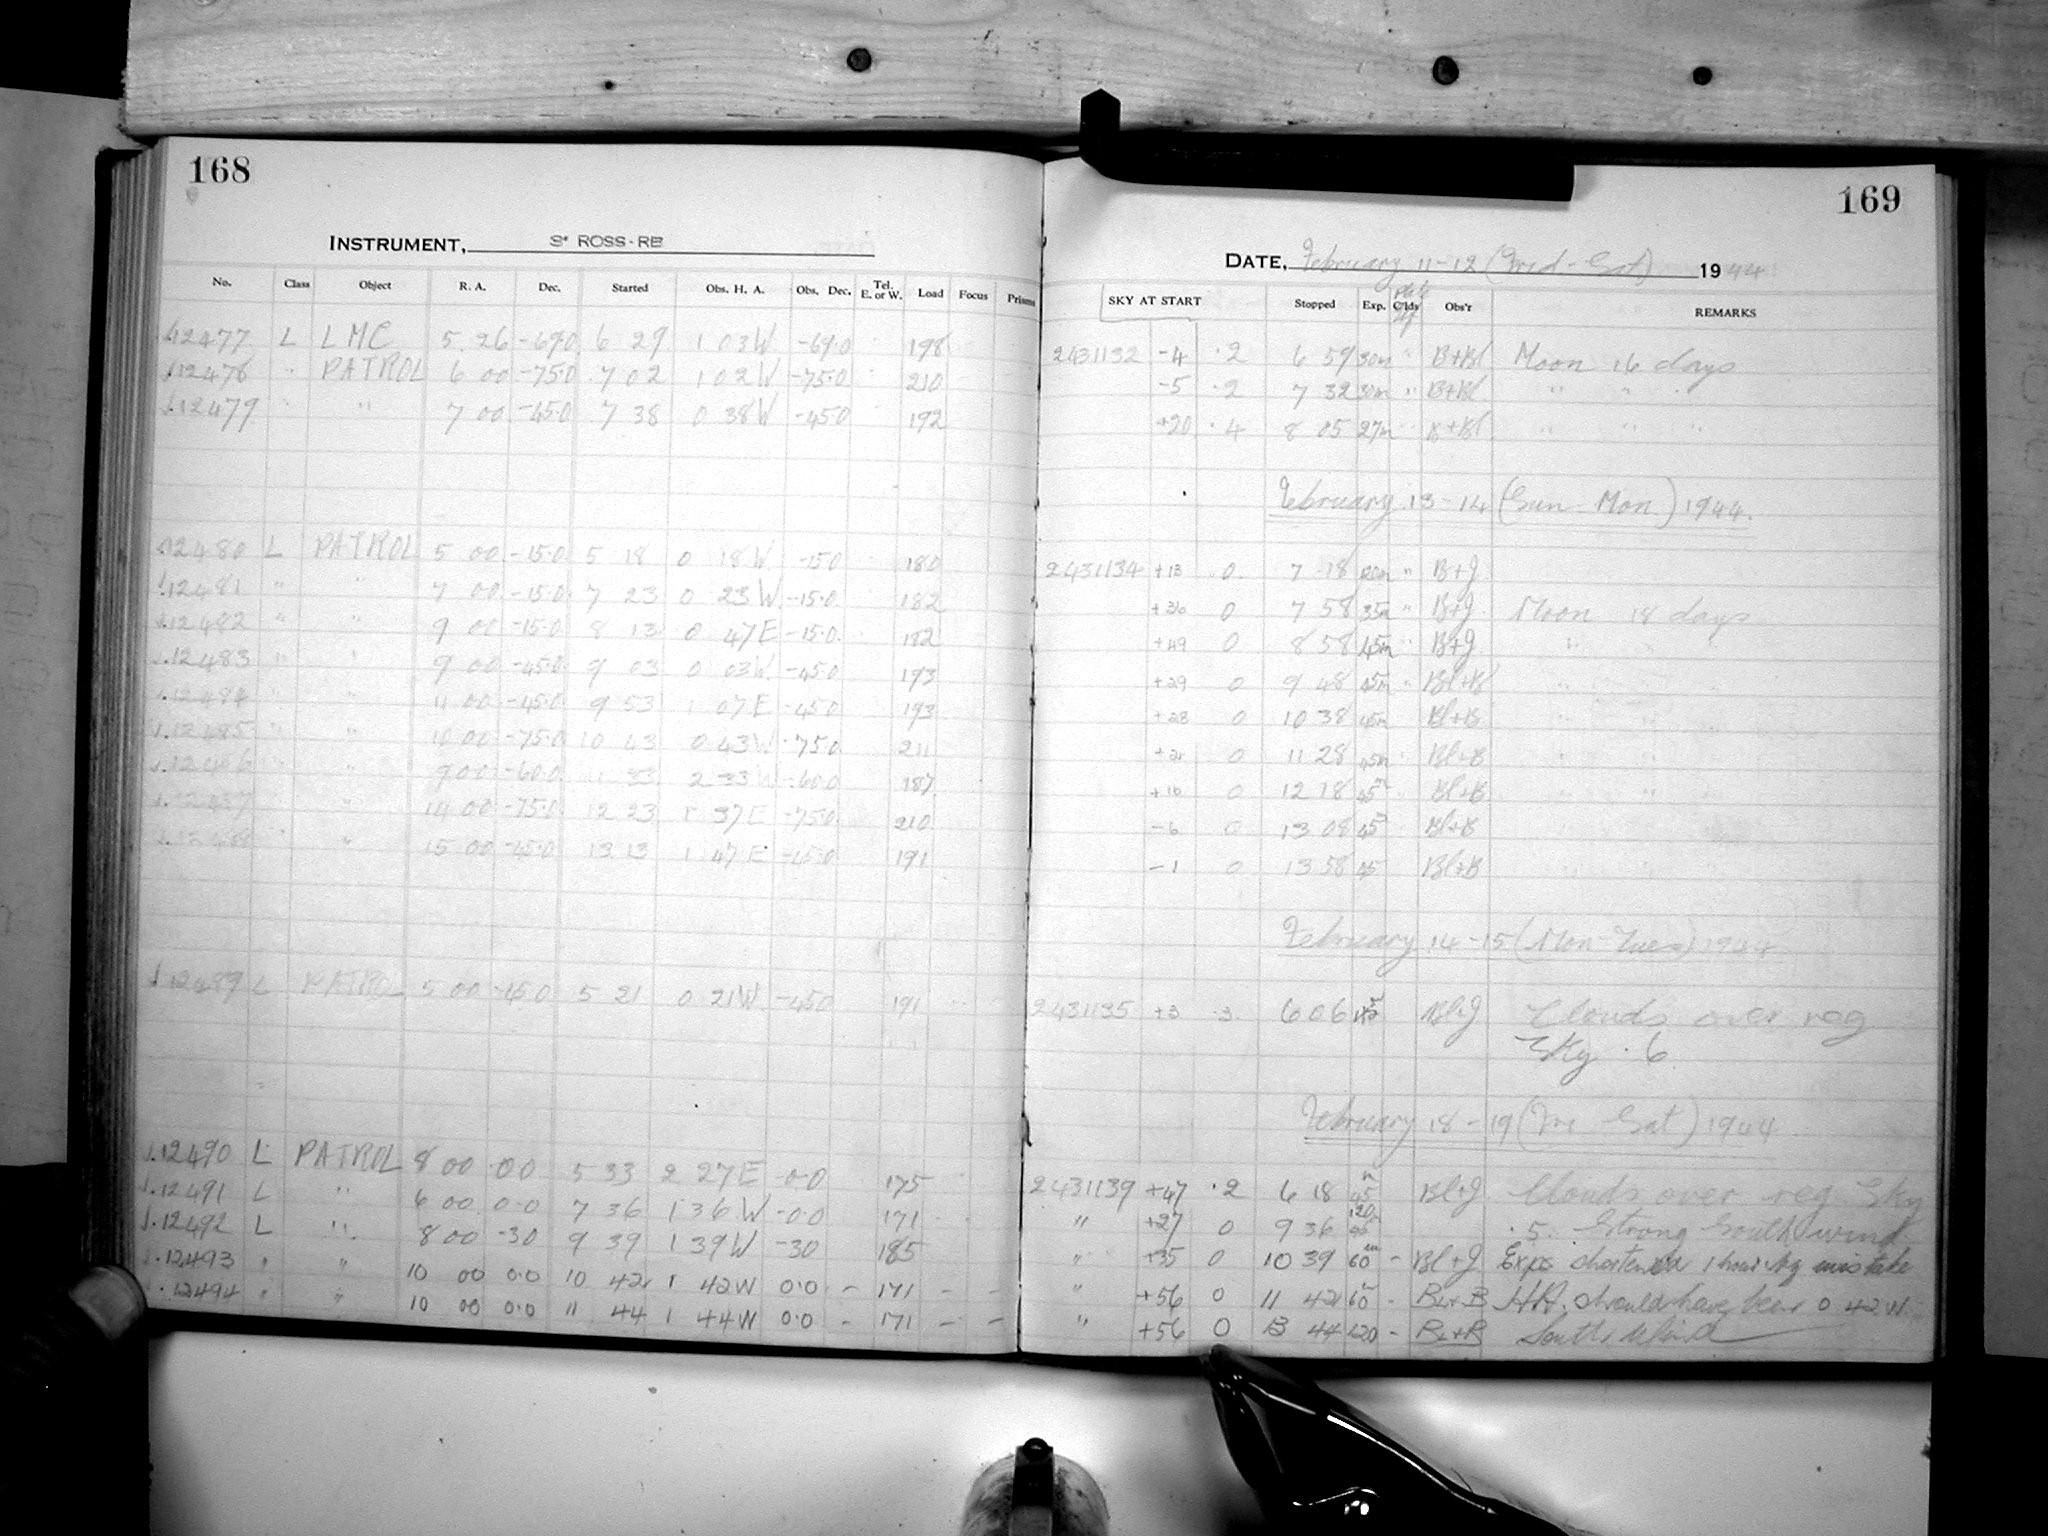 168
INSTRUMENT, 3" ROSS-RB
No. Class Object R. A. Dec. Started Obs. H. A. Obs. Dec. Tel. E. or W. Load Focus Prisms
12477 L LMC 5 26 -69.0 6 29 1 03W -69.0 198
12478 " PATROL 6 00 -75.0 7 02 1 02W -75.0 210
12479 " " 7 00 -45.0 7 38 0 38W -45.0 192
12480 L PATROL 5 00 -15.0 5 18 0 18W -15.0 180
12481 " " 7 00 -15.0 7 23 0 23W -15.0 182
12482 " " 9 00 -15.0 8 13 0 47E -15.0 182
12483 " " 9 00 -45.0 9 03 0 03W -45.0 193
12484 " " 11 00 -45.0 9 53 1 07E -45.0 193
12485 " " 10 00 -75.0 10 43 0 43W -75.0 211
12486 " " 9 00 -60.0 11 33 2 33W -60.0 187
12487 " 14 00 -75.0 12 23 1 37E -75.0 210
12488 " 15 00 -45.0 13 13 1 47E -45.0 191
12489 L PATROL 5 00 -45.0 5 21 0 21W -45.0 191
12490 L PATROL 8 00 0.0 5 33 2 27E 0.0 175
12491 L " 6 00 0.0 7 36 1 36W 0.0 171
12492 L " 8 00 -30 9 39 1 39W -30 185
12493 " " 10 00 0.0 10 42 1 42W 0.0 - 171 - -
12494 " " 10 00 0.0 11 44 1 44W 0.0 - 171 - -
169
DATE, February 11-12 (Frid-Sat) 1944
SKY AT START Stopped Exp. C'lds Obs'r REMARKS
2431132 -4 .2 6 59 30m " B+Bl Moon 16 days
-5 .2 7 32 30m " B+Bl " " "
+20 .4 8 05 27m " B+Bl " " "
February 13-14 (Sun-Mon) 1944.
2431134 +13 0 7 18 120m " B+J
+36 0 7 58 35m " B+J Moon 18 days
+49 0 8 58 45m " B+J "
+29 0 9 48 45m " Bl+B "
+28 0 10 38 45m Bl+B
+21 0 11 28 45m Bl+B
+16 0 12 18 45m Bl+B
-6 0 13 08 45m Bl+B
-1 0 13 58 45 Bl+B
February 14-15 (Mon-Tues) 1944
2431135 +3 .3 6 06 45m Bl+J Clouds over reg
Sky .6
February 18-19 (Fri Sat) 1944
2431139 +47 .2 6 18 45m Bl+J Clouds over reg Sky
" +27 0 9 36 120 .5. Strong South wind
" +35 0 10 39 60m - Bl+J Exp. shortened 1 hour by mistake
" +56 0 11 42 60m - BL+B H.A. should have been 0 42 W.
" +56 0 13 44 120 - BL+B South Wind